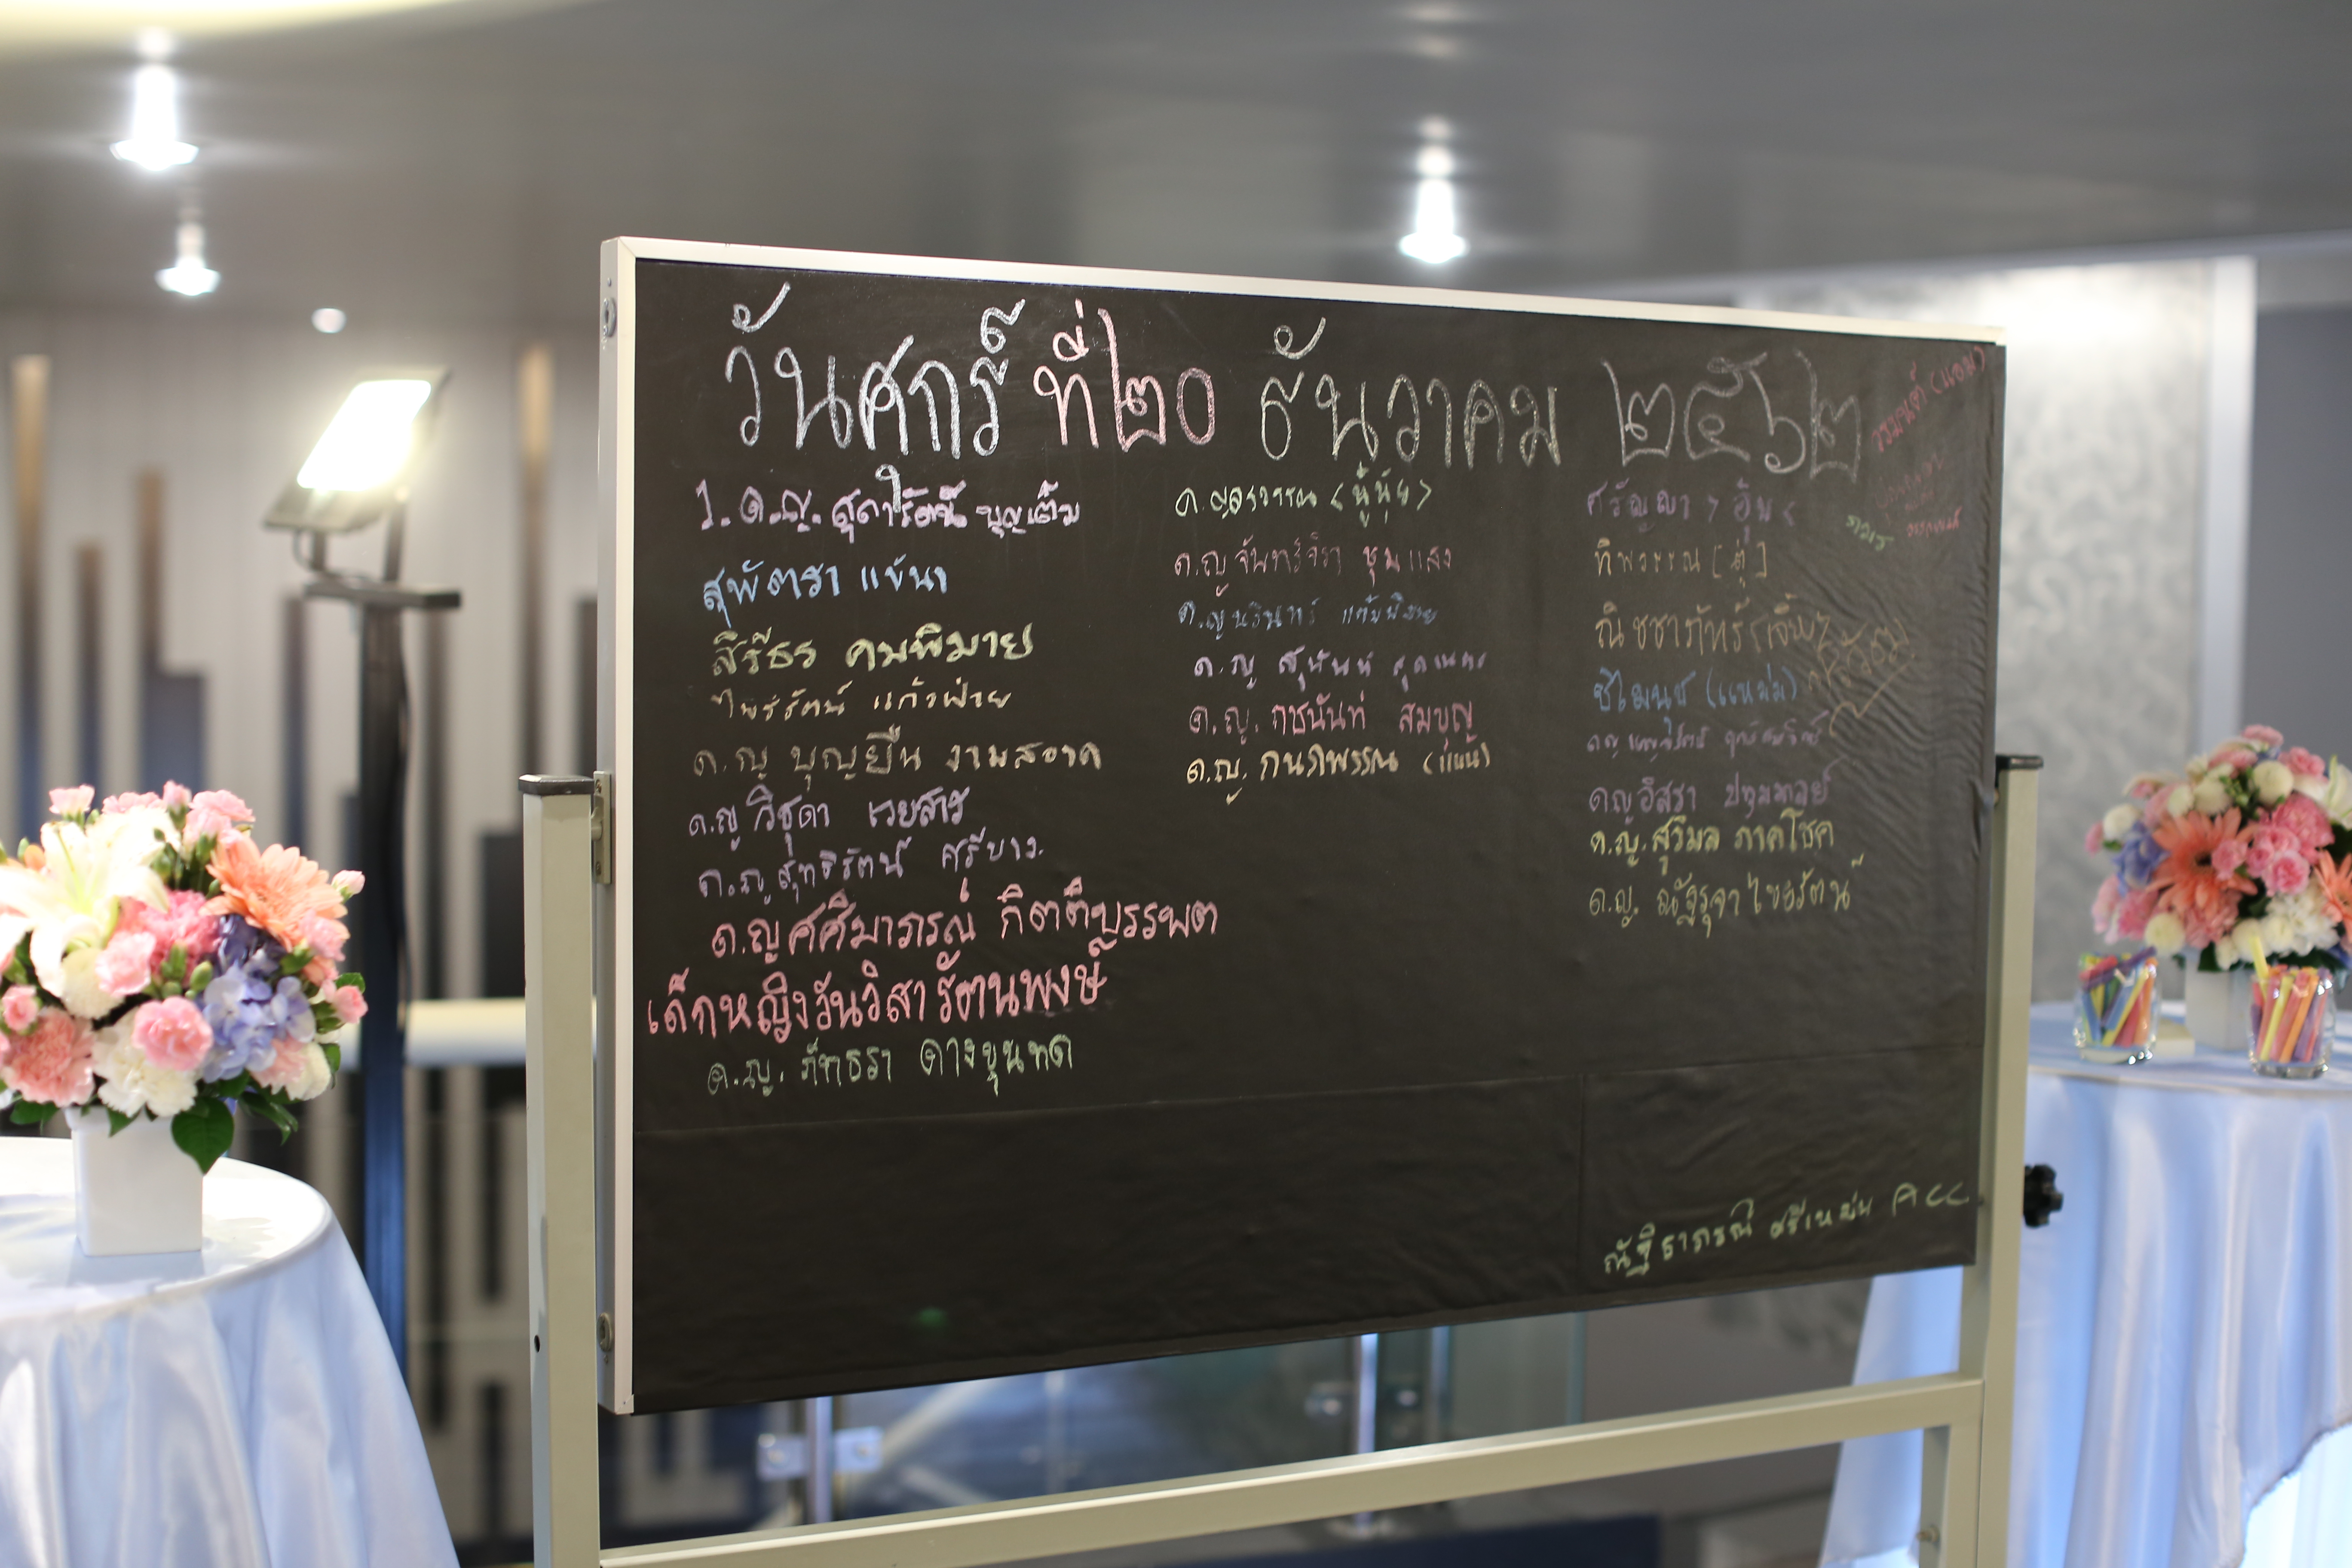 วันศุกร์ ที่ ๒๐ ธันวาคม ๒๕๖๒
1. ด.ญ. สุดารัตน์ บุญเติม
สุพัตรา แข้นา
สิรีธร คมพิมาย
ไพรรัตน์ แก้วฝ่าย
ด.ญ บุญยืน งามสอาด
ด.ญ วิชุดา เวยสาร
ด.ญ สุทธิรัตน์ ศรีขาว
ด.ญ ศศิมาภรณ์ กิตติบรรพต
เด็กหญิงวันวิสา รัตนพงษ์
ด.ญ. ภัทธรา ดางขุนทด
ด.ญ <นุ้ยนุ้ย>
ด.ญ จันทร์จิรา ชุมแสง
ด.ญ นรินทร์
ด.ญ สุนันท์
ด.ญ. กชนันท์ สมบุญ
ด.ญ. กนกพรรณ (แนน)
ศรัญญา > อุ้ม <
ทิพวรรณ [ตุ่]
ณิชชาภัทร์
(แหม่ม)
ดญ อิสรา ปทุมมาลย์
ด.ญ. สุวิมล ภาคโชค
ด.ญ. ณัฐรุจา ไชยรัตน์
(แอม)
ณัฐธาภรณ์ ศรีเหม่น ACC